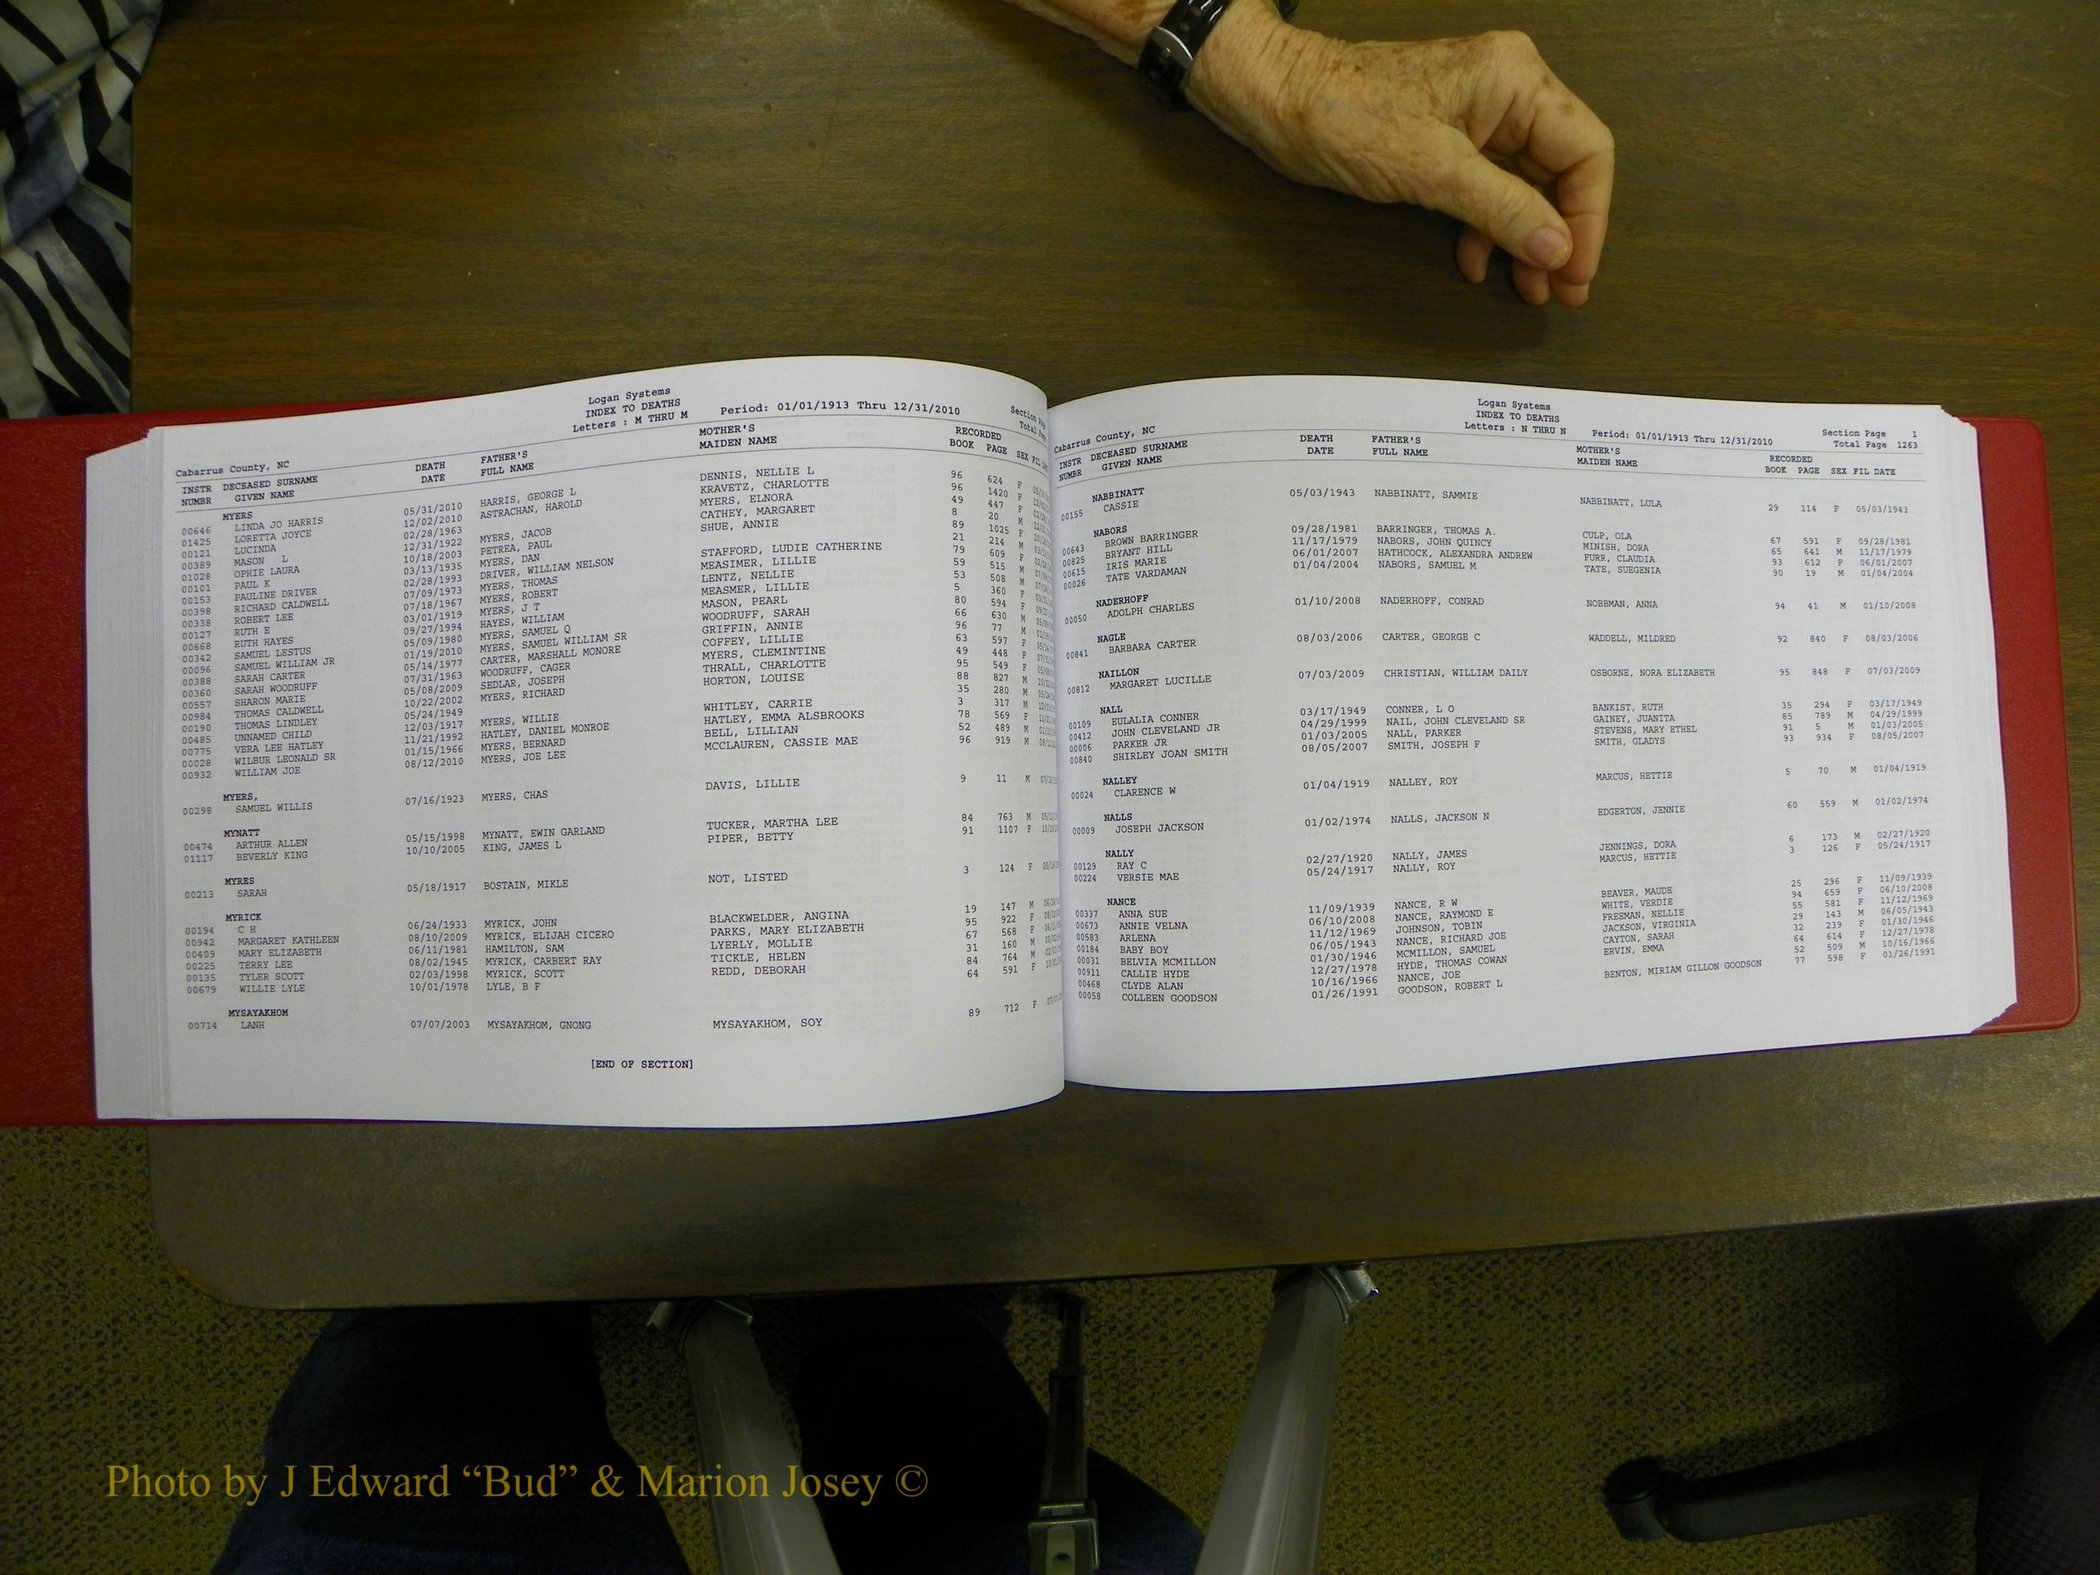 Logan Systems
INDEX TO DEATHS
Letters : M THRU M Period: 01/01/1913 Thru 12/31/2010
Cabarrus County, NC Section Page
Total Page
INSTR DECEASED SURNAME DEATH FATHER'S MOTHER'S RECORDED
NUMBR GIVEN NAME DATE FULL NAME MAIDEN NAME BOOK PAGE SEX FIL DATE
MYERS
00646 LINDA JO HARRIS 05/31/2010 HARRIS, GEORGE L DENNIS, NELLIE L 96 624 F
01425 LORETTA JOYCE 12/02/2010 ASTRACHAN, HAROLD KRAVETZ, CHARLOTTE 96 1420 F
00121 LUCINDA 02/28/1963 MYERS, ELNORA 49 447 F
00389 MASON L 12/31/1922 MYERS, JACOB CATHEY, MARGARET 8 20 M
01028 OPHIE LAURA 10/18/2003 PETREA, PAUL SHUE, ANNIE 89 1025 F
00101 PAUL K 03/13/1935 MYERS, DAN 21 214 M
00153 PAULINE DRIVER 02/28/1993 DRIVER, WILLIAM NELSON STAFFORD, LUDIE CATHERINE 79 609 F
00398 RICHARD CALDWELL 07/09/1973 MYERS, THOMAS MEASIMER, LILLIE 59 515 M
00338 ROBERT LEE 07/18/1967 MYERS, ROBERT LENTZ, NELLIE 53 508 M
00127 RUTH E 03/01/1919 MYERS, J T MEASMER, LILLIE 5 360 F
00668 RUTH HAYES 09/27/1994 HAYES, WILLIAM MASON, PEARL 80 594 F
00342 SAMUEL LESTUS 05/09/1980 MYERS, SAMUEL Q WOODRUFF, SARAH 66 630 M
00096 SAMUEL WILLIAM JR 01/19/2010 MYERS, SAMUEL WILLIAM SR GRIFFIN, ANNIE 96 77 M
00388 SARAH CARTER 05/14/1977 CARTER, MARSHALL MONORE COFFEY, LILLIE 63 597 F
00360 SARAH WOODRUFF 07/31/1963 WOODRUFF, CAGER MYERS, CLEMINTINE 49 448 F
00557 SHARON MARIE 05/08/2009 SEDLAR, JOSEPH THRALL, CHARLOTTE 95 549 F
00984 THOMAS CALDWELL 10/22/2002 MYERS, RICHARD HORTON, LOUISE 88 827 M
00190 THOMAS LINDLEY 05/24/1949 35 280 M
00485 UNNAMED CHILD 12/03/1917 MYERS, WILLIE WHITLEY, CARRIE 3 317 M
00775 VERA LEE HATLEY 11/21/1992 HATLEY, DANIEL MONROE HATLEY, EMMA ALSBROOKS 78 569 F
00028 WILBUR LEONALD SR 01/15/1966 MYERS, BERNARD BELL, LILLIAN 52 489 M
00932 WILLIAM JOE 08/12/2010 MYERS, JOE LEE MCCLAUREN, CASSIE MAE 96 919 M
MYERS,
00298 SAMUEL WILLIS 07/16/1923 MYERS, CHAS DAVIS, LILLIE 9 11 M
MYNATT
00474 ARTHUR ALLEN 05/15/1998 MYNATT, EWIN GARLAND TUCKER, MARTHA LEE 84 763 M
01117 BEVERLY KING 10/10/2005 KING, JAMES L PIPER, BETTY 91 1107 F
MYRES
00213 SARAH 05/18/1917 BOSTAIN, MIKLE NOT, LISTED 3 124 F
MYRICK
00194 C H 06/24/1933 MYRICK, JOHN BLACKWELDER, ANGINA 19 147 M
00942 MARGARET KATHLEEN 08/10/2009 MYRICK, ELIJAH CICERO PARKS, MARY ELIZABETH 95 922 F
00409 MARY ELIZABETH 06/11/1981 HAMILTON, SAM LYERLY, MOLLIE 67 568 F
00225 TERRY LEE 08/02/1945 MYRICK, CARBERT RAY TICKLE, HELEN 31 160 M
00135 TYLER SCOTT 02/03/1998 MYRICK, SCOTT REDD, DEBORAH 84 764 M
00679 WILLIE LYLE 10/01/1978 LYLE, B F 64 591 F
MYSAYAKHOM
00714 LANH 07/07/2003 MYSAYAKHOM, GNONG MYSAYAKHOM, SOY 89 712 F
[END OF SECTION]
Logan Systems
INDEX TO DEATHS
Letters : N THRU N Period: 01/01/1913 Thru 12/31/2010
Cabarrus County, NC Section Page 1
Total Page 1263
INSTR DECEASED SURNAME DEATH FATHER'S MOTHER'S RECORDED
NUMBR GIVEN NAME DATE FULL NAME MAIDEN NAME BOOK PAGE SEX FIL DATE
NABBINATT
00155 CASSIE 05/03/1943 NABBINATT, SAMMIE NABBINATT, LULA 29 114 F 05/03/1943
NABORS
00643 BROWN BARRINGER 09/28/1981 BARRINGER, THOMAS A. CULP, OLA 67 591 F 09/28/1981
00825 BRYANT HILL 11/17/1979 NABORS, JOHN QUINCY MINISH, DORA 65 641 M 11/17/1979
00615 IRIS MARIE 06/01/2007 HATHCOCK, ALEXANDRA ANDREW FURR, CLAUDIA 93 612 F 06/01/2007
00026 TATE VARDAMAN 01/04/2004 NABORS, SAMUEL M TATE, SUEGENIA 90 19 M 01/04/2004
NADERHOFF
00050 ADOLPH CHARLES 01/10/2008 NADERHOFF, CONRAD NOBBMAN, ANNA 94 41 M 01/10/2008
NAGLE
00841 BARBARA CARTER 08/03/2006 CARTER, GEORGE C WADDELL, MILDRED 92 840 F 08/03/2006
NAILLON
00812 MARGARET LUCILLE 07/03/2009 CHRISTIAN, WILLIAM DAILY OSBORNE, NORA ELIZABETH 95 848 F 07/03/2009
NALL
00109 EULALIA CONNER 03/17/1949 CONNER, L O BANKIST, RUTH 35 294 F 03/17/1949
00412 JOHN CLEVELAND JR 04/29/1999 NAIL, JOHN CLEVELAND SR GAINEY, JUANITA 85 789 M 04/29/1999
00006 PARKER JR 01/03/2005 NALL, PARKER STEVENS, MARY ETHEL 91 5 M 01/03/2005
00840 SHIRLEY JOAN SMITH 08/05/2007 SMITH, JOSEPH F SMITH, GLADYS 93 934 F 08/05/2007
NALLEY
00024 CLARENCE W 01/04/1919 NALLEY, ROY MARCUS, HETTIE 5 70 M 01/04/1919
NALLS
00009 JOSEPH JACKSON 01/02/1974 NALLS, JACKSON N EDGERTON, JENNIE 60 559 M 01/02/1974
NALLY
00129 RAY C 02/27/1920 NALLY, JAMES JENNINGS, DORA 6 173 M 02/27/1920
00224 VERSIE MAE 05/24/1917 NALLY, ROY MARCUS, HETTIE 3 126 F 05/24/1917
NANCE
00337 ANNA SUE 11/09/1939 NANCE, R W BEAVER, MAUDE 25 296 F 11/09/1939
00673 ANNIE VELNA 06/10/2008 NANCE, RAYMOND E WHITE, VERDIE 94 659 F 06/10/2008
00583 ARLENA 11/12/1969 JOHNSON, TOBIN FREEMAN, NELLIE 55 581 F 11/12/1969
00184 BABY BOY 06/05/1943 NANCE, RICHARD JOE JACKSON, VIRGINIA 29 143 M 06/05/1943
00031 BELVIA MCMILLON 01/30/1946 MCMILLON, SAMUEL CAYTON, SARAH 32 239 F 01/30/1946
00911 CALLIE HYDE 12/27/1978 HYDE, THOMAS COWAN ERVIN, EMMA 64 614 F 12/27/1978
00468 CLYDE ALAN 10/16/1966 NANCE, JOE 52 509 M 10/16/1966
00058 COLLEEN GOODSON 01/26/1991 GOODSON, ROBERT L BENTON, MIRIAM GILLON GOODSON 77 598 F 01/26/1991
Photo by J Edward “Bud” & Marion Josey ©